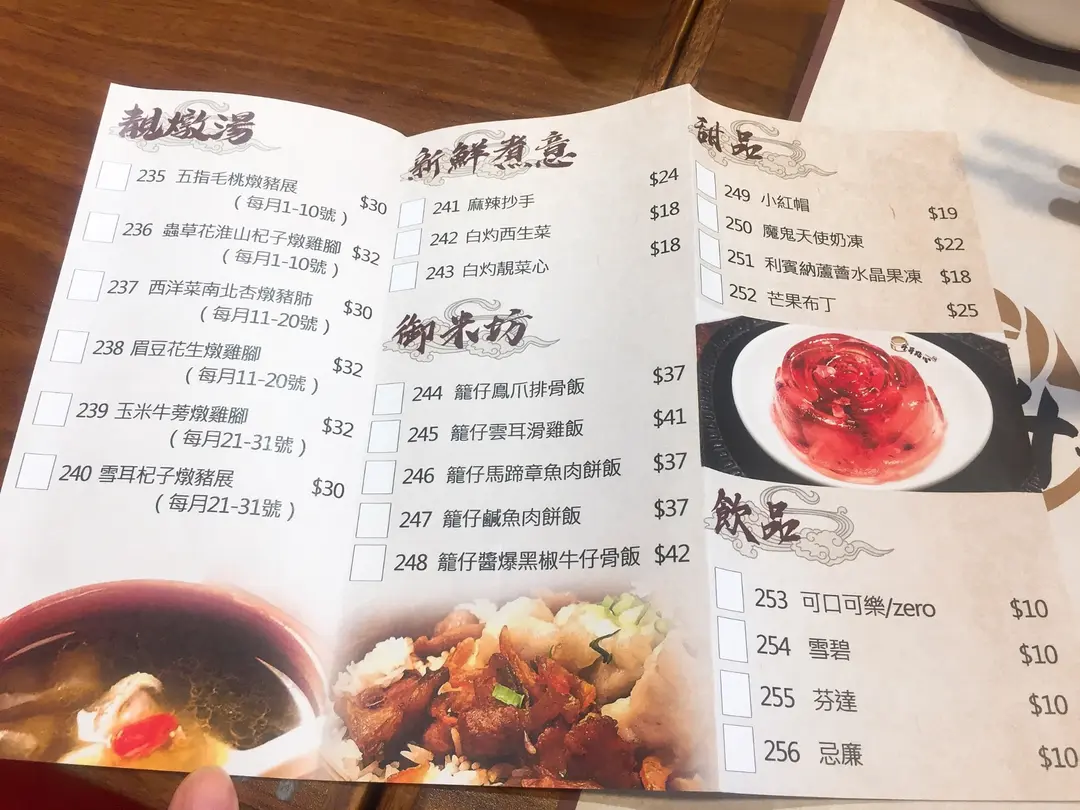 靚燉湯
235 五指毛桃燉豬展 $30
(每月1-10號)
236 蟲草花淮山杞子燉雞腳 $32
(每月1-10號)
237 西洋菜南北杏燉豬肺 $30
(每月11-20號)
238 眉豆花生燉雞腳 $32
(每月11-20號)
239 玉米牛蒡燉雞腳 $32
(每月21-31號)
240 雪耳杞子燉豬展 $30
(每月21-31號)
新鮮煮意
241 麻辣抄手 $24
242 白灼西生菜 $18
243 白灼靚菜心 $18
御米坊
244 籠仔鳳爪排骨飯 $37
245 籠仔雲耳滑雞飯 $41
246 籠仔馬蹄章魚肉餅飯 $37
247 籠仔鹹魚肉餅飯 $37
248 籠仔醬爆黑椒牛仔骨飯 $42
甜品
249 小紅帽 $19
250 魔鬼天使奶凍 $22
251 利賓納蘆薈水晶果凍 $18
252 芒果布丁 $25
飲品
253 可口可樂/zero $10
254 雪碧 $10
255 芬達 $10
256 忌廉 $10